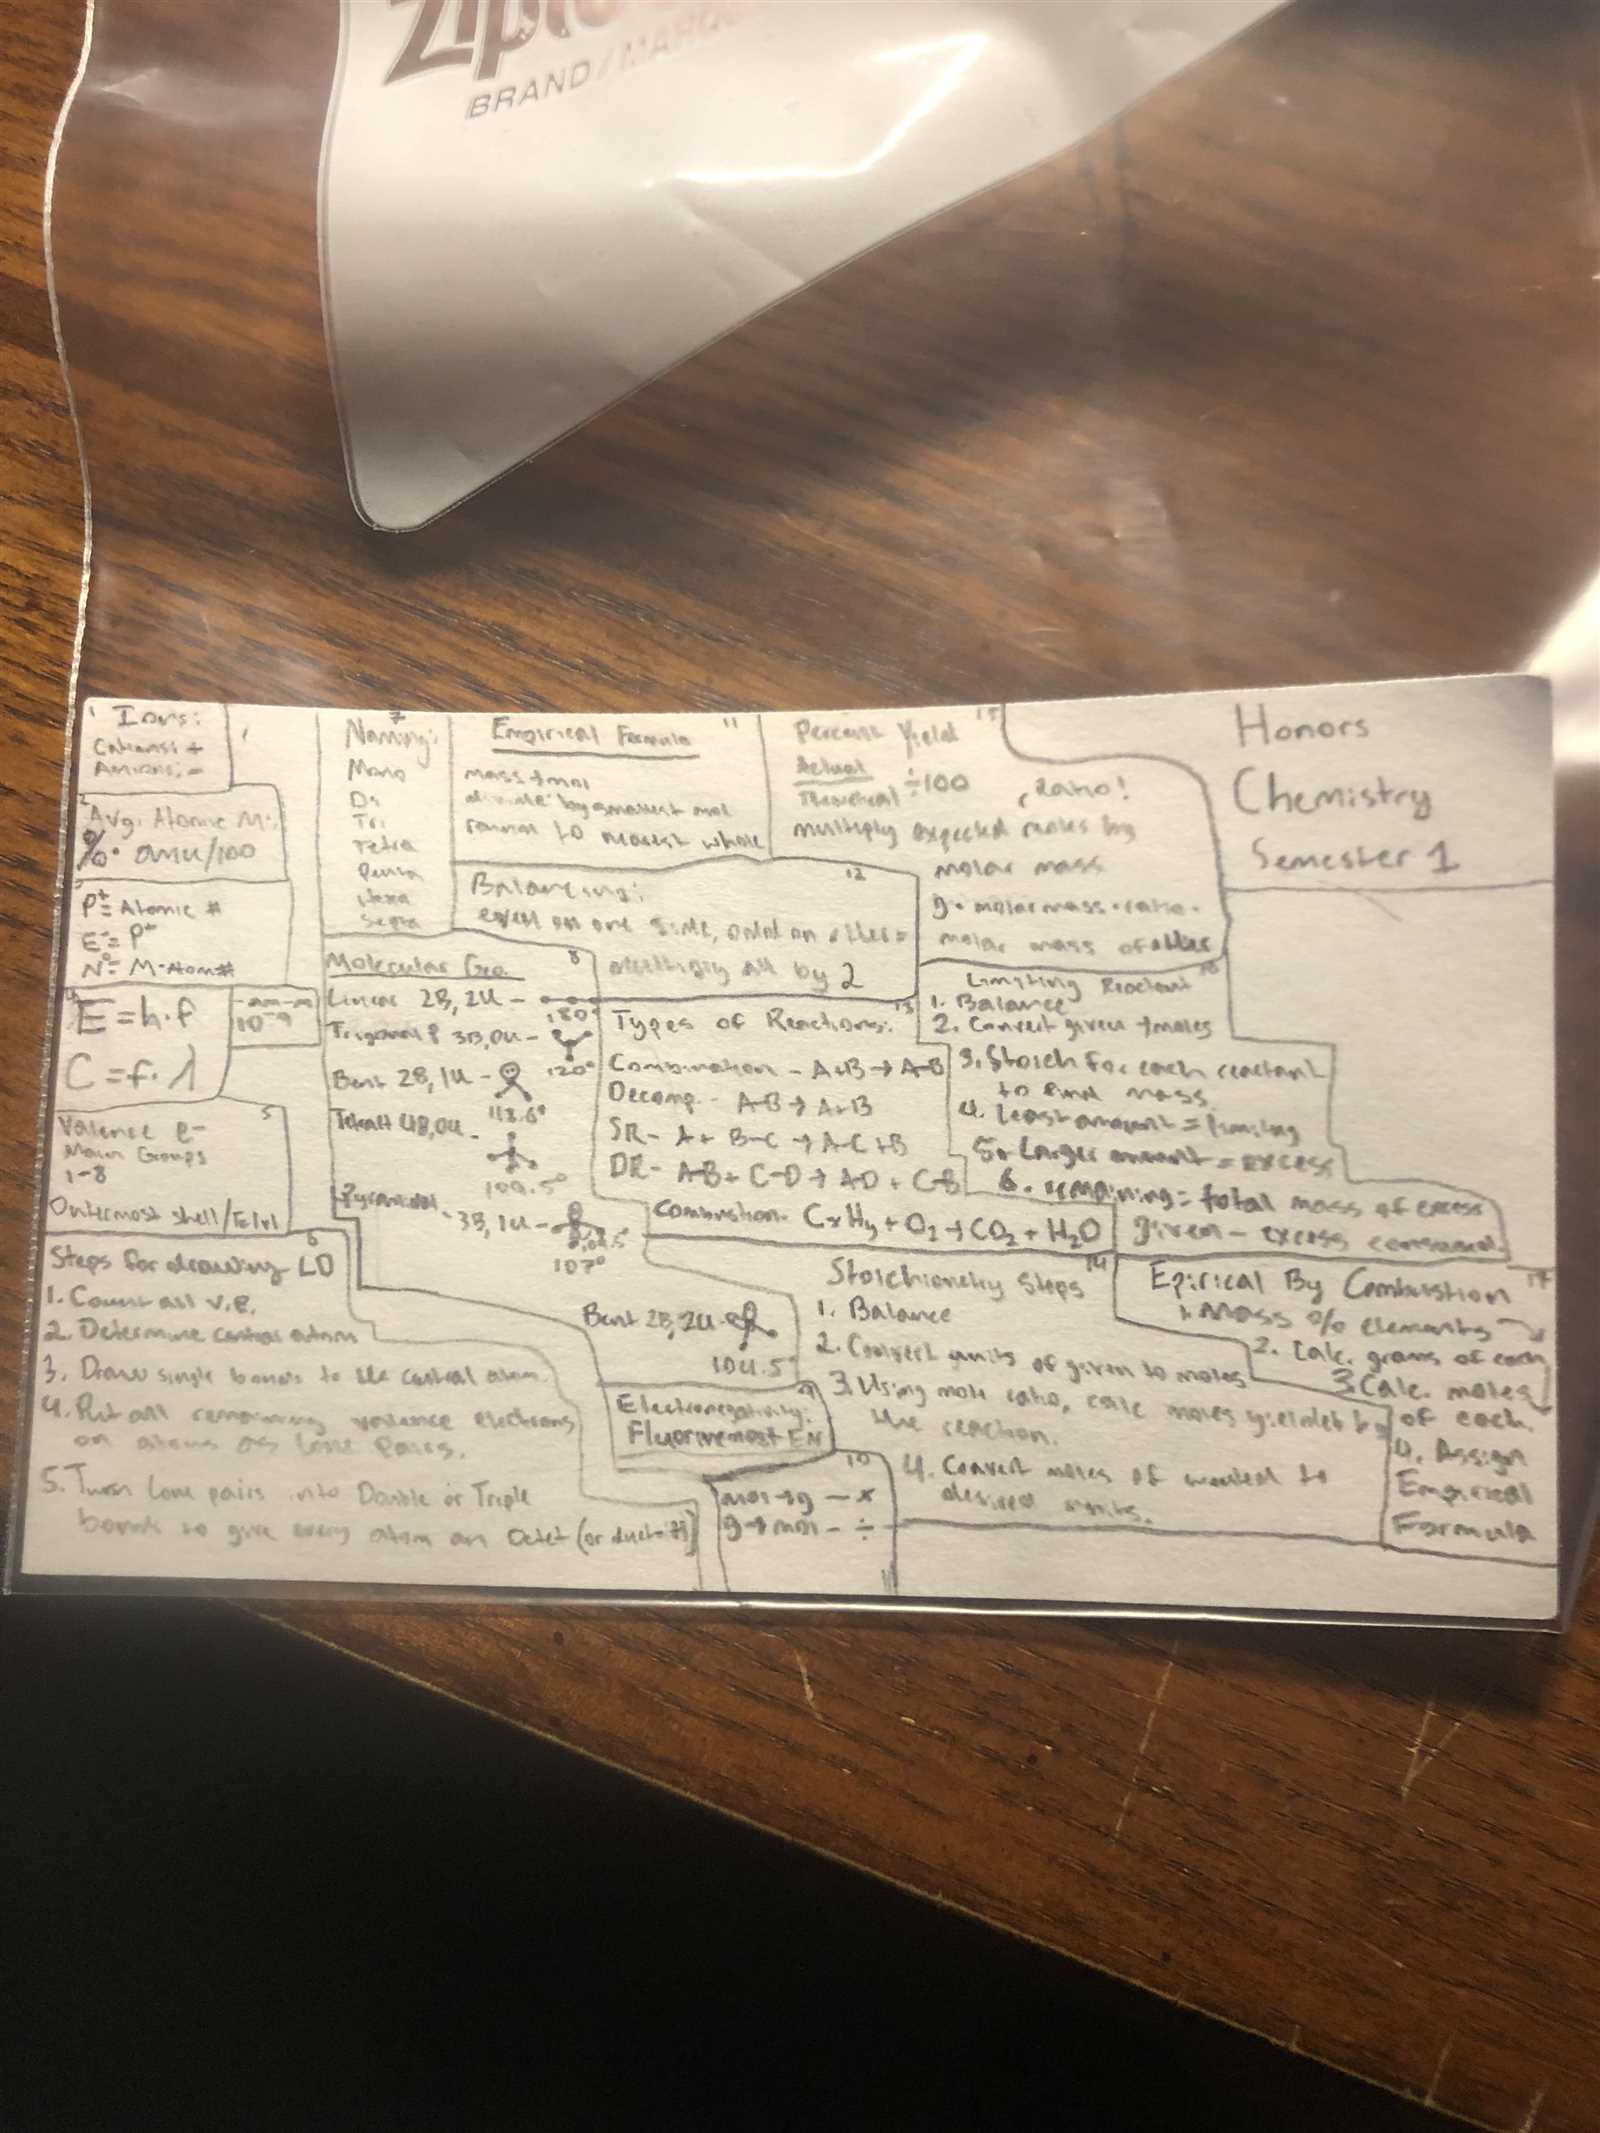 Ziplo
BRAND/MARQ
1 Ions:
Cations: +
Anions: -
2
Avg. Atomic M:
%· amu/100
3
P+= Atomic #
E-= P+
N°= M-Atom#
4
E=h·f
C=f·λ
10⁻⁹
5
Valence e-
Main Groups
1-8
Outermost shell/
6
Steps for drawing LD
1. Count all v.e.
2. Determine central atom
3. Draw single bonds to the central atom.
4. Put all remaining valence electrons
on atoms as lone pairs.
5. Turn lone pairs into Double or Triple
bonds to give every atom an Octet (or duet
7
Naming:
Mono
Di
Tri
Tetra
Penta
Hexa
Septa
8
Molecular Geo.
Linear 2B, 2U -
180°
Trigonal P 3B,0U -
120°
Bent 2B, 1U -
118.6°
Tetrah 4B,0U -
109.5°
Pyramidal - 3B, 1U -
107°
Bent 2B, 2U -
104.5°
9
Electronegativity:
Fluorine most EN
10
mol→g - ×
g→mol - ÷
11
Empirical Formula
mass→mol
divide by smallest mol
round to nearest whole
12
Balancing:
even on one side, odd on other =
multiply all by 2
13
Types of Reactions:
Combination - A+B→A-B
Decomp - A-B→A+B
SR- A+ B-C →A-C+B
DR- A-B+ C-D→AD + C-B
Combustion- CxHy + O₂→CO₂ + H₂O
14
Stoichiometry Steps
1. Balance
2. Convert units of given to moles
3. Using mole ratio, calc moles yielded by
the reaction.
4. Convert moles of wanted to
desired units.
15
Percent Yield
Actual
Theoretical ÷100
, Ratio!
multiply expected moles by
molar mass
g· molar mass·ratio·
molar mass of other
16
Limiting Reactant
1. Balance
2. Convert given →moles
3. Stoich for each reactant
to find mass
4. Least amount = limiting
5. Larger amount = excess
6. remaining = total mass of excess
given - excess consumed.
17
Epirical By Combustion
1. Mass % elements
2. Calc. grams of each
3. Calc. moles
of each.
4. Assign
Empirical
Formula
Honors
Chemistry
Semester 1